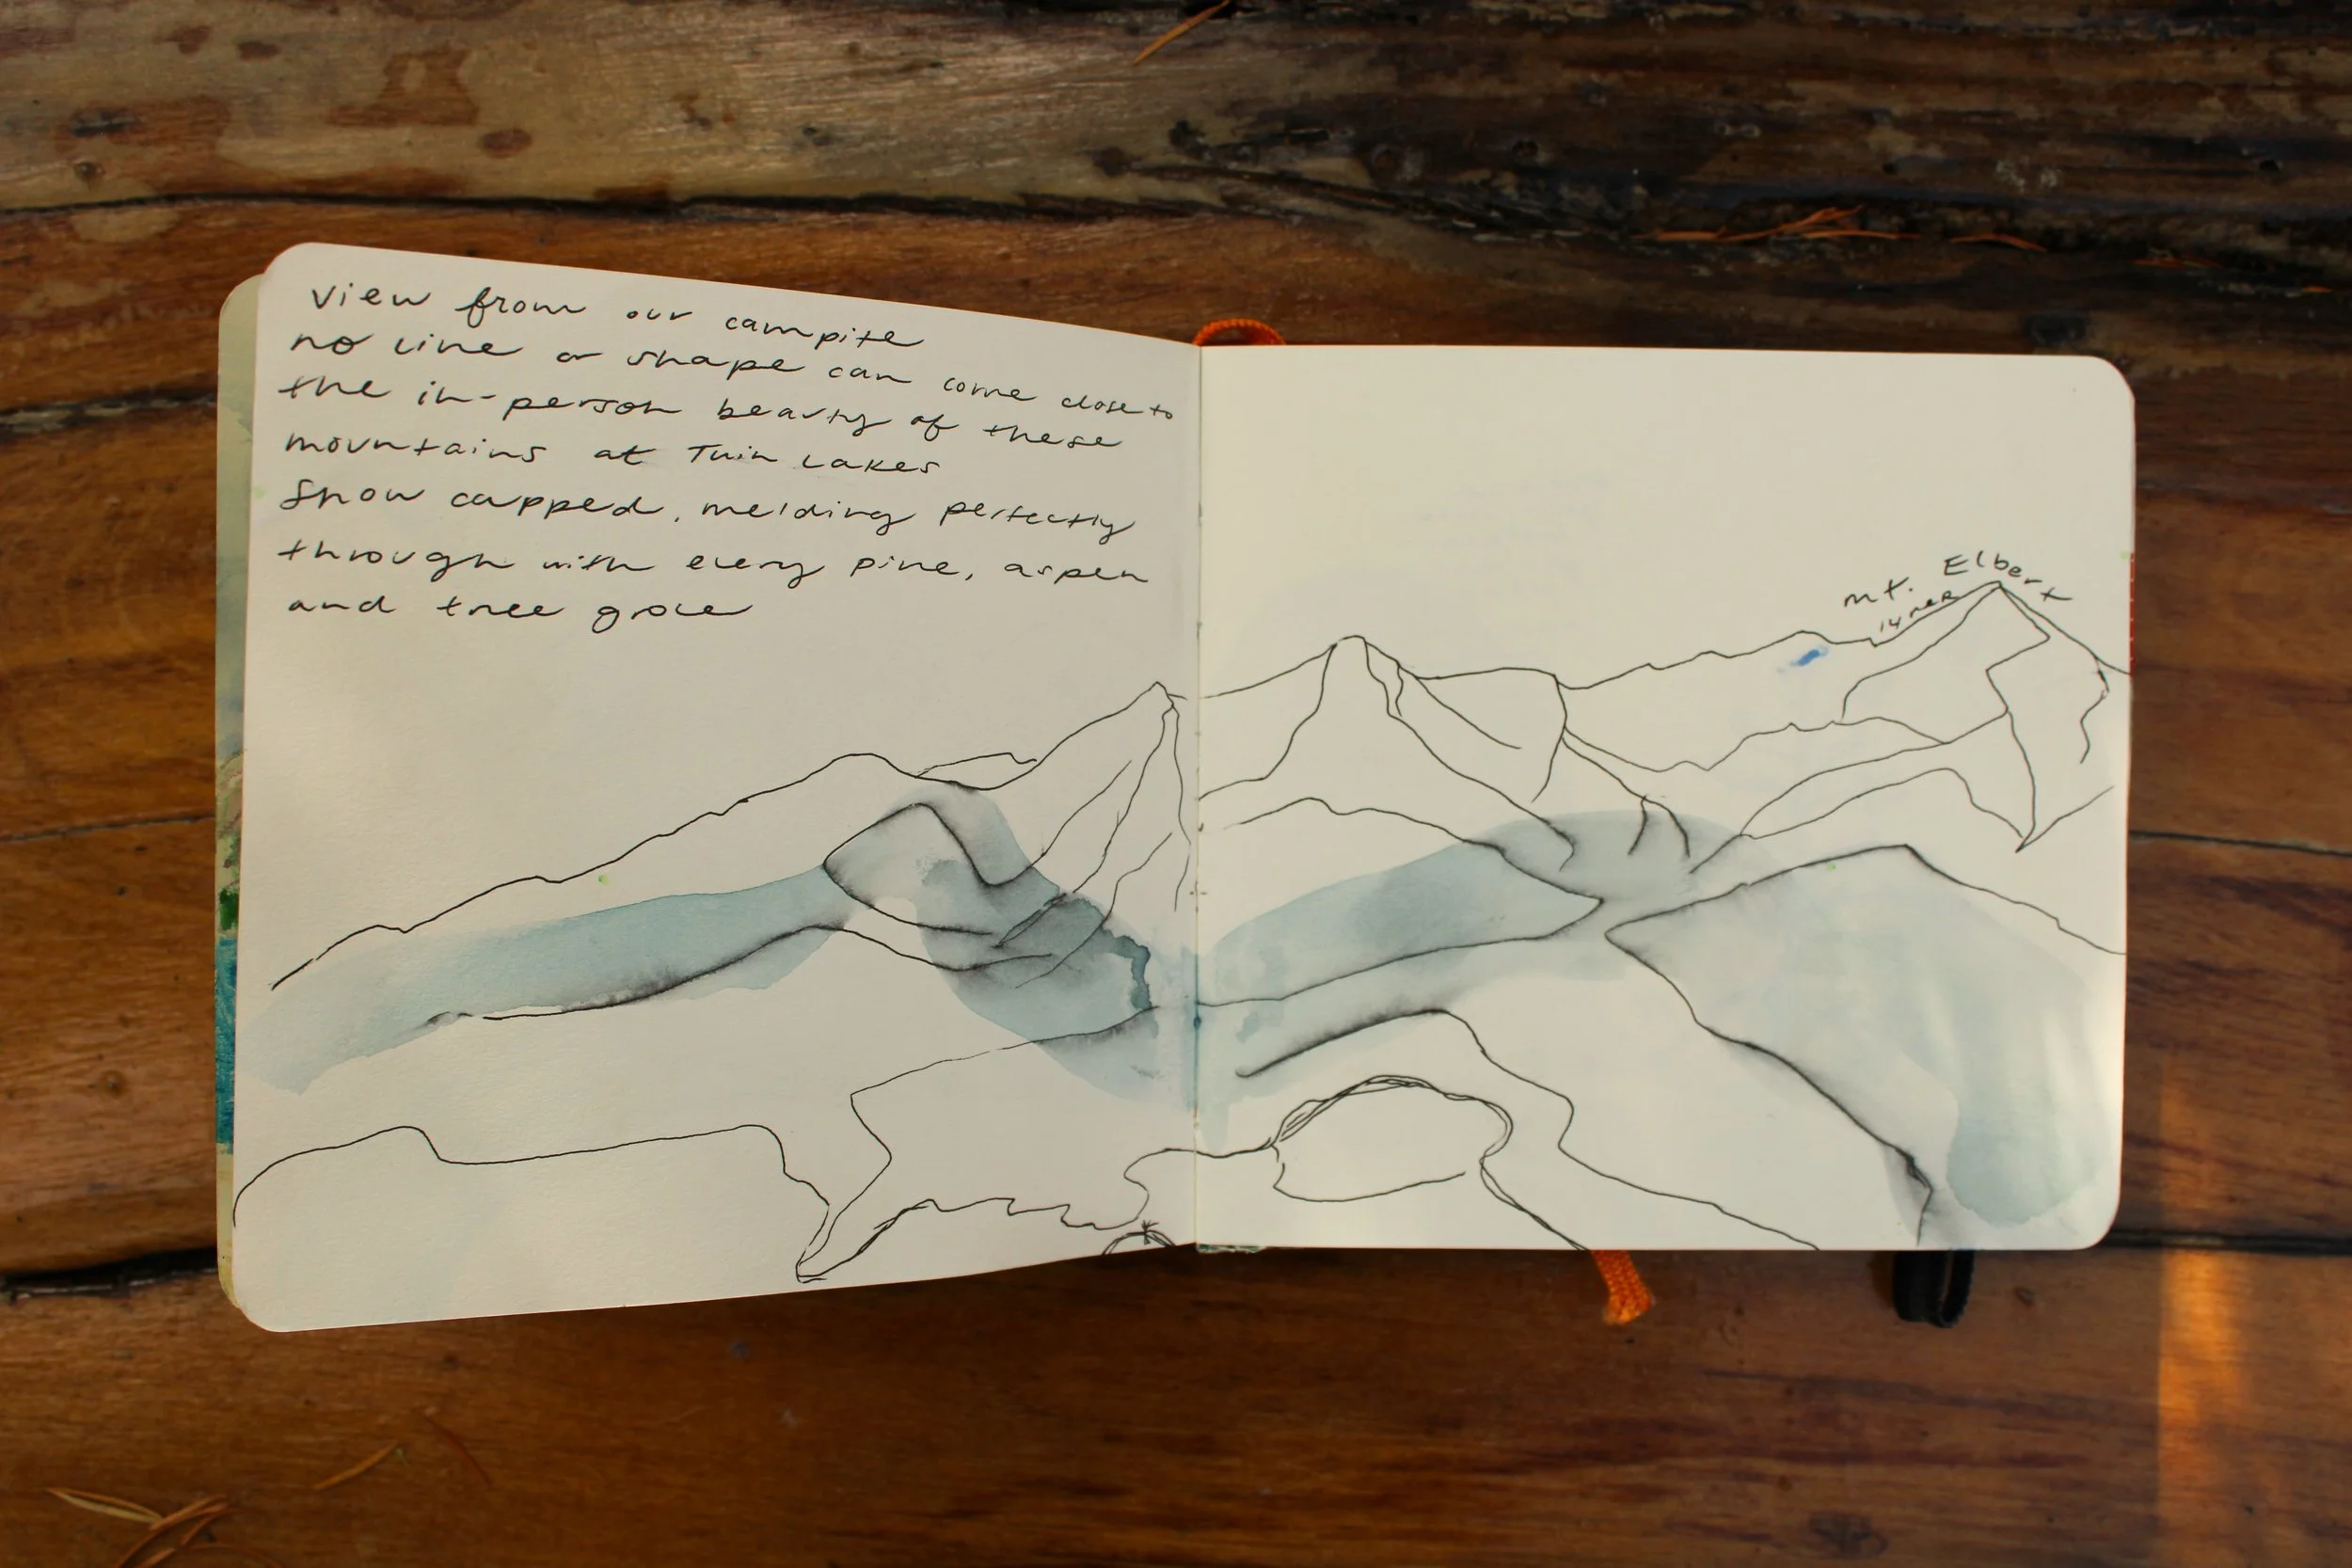 view from our campsite
no line or shape can come close to
the in-person beauty of these
mountains at Twin Lakes
Snow capped, melding perfectly
through with every pine, aspen
and tree
Mt. Elbert
14ner